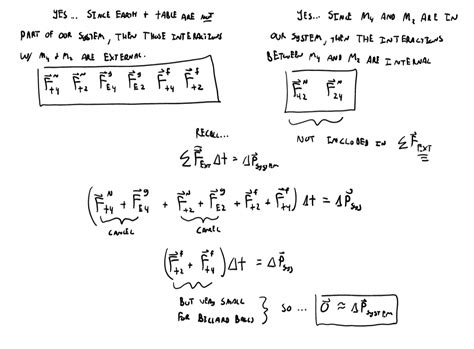 YES... SINCE EARTH + TABLE ARE NOT
PART OF OUR SYSTEM, THEN THOSE INTERACTIONS
W/ M₄ + M₂ ARE EXTERNAL.
F⃗ᴺₜ₄ F⃗ᴺₜ₂ F⃗ᵍE₄ F⃗ᵍE₂ F⃗ᶠₜ₄ F⃗ᶠₜ₂
YES... SINCE M₄ AND M₂ ARE IN
OUR SYSTEM, THEN THE INTERACTIONS
BETWEEN M₄ AND M₂ ARE INTERNAL
F⃗ᴺ₄₂ F⃗ᴺ₂₄
NOT INCLUDED IN ΣF⃗EXT
RECALL...
ΣF⃗EXT Δt = ΔP⃗SYSTEM
(F⃗ᴺₜ₄ + F⃗ᵍE₄ + F⃗ᴺₜ₂ + F⃗ᵍE₂ + F⃗ᶠₜ₂ + F⃗ᶠₜ₄) Δt = ΔP⃗SYS
CANCEL CANCEL
(F⃗ᶠₜ₂ + F⃗ᶠₜ₄) Δt = ΔP⃗SYS
BUT VERY SMALL
FOR BILLARD BALLS } SO ... 0⃗ ≈ ΔP⃗SYSTEM